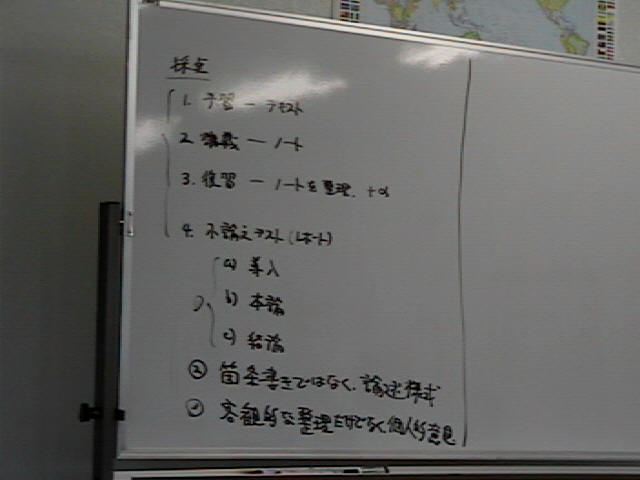 採点
1. 予習 ー テキスト
2. 講義 ー ノート
3. 復習 ー ノートを整理. +α
4. 小論文テスト(レポート)
a) 導入
b) 本論
c) 結論
② 箇条書きではなく、論述様式
客観的な整理だけでなく個人的意見